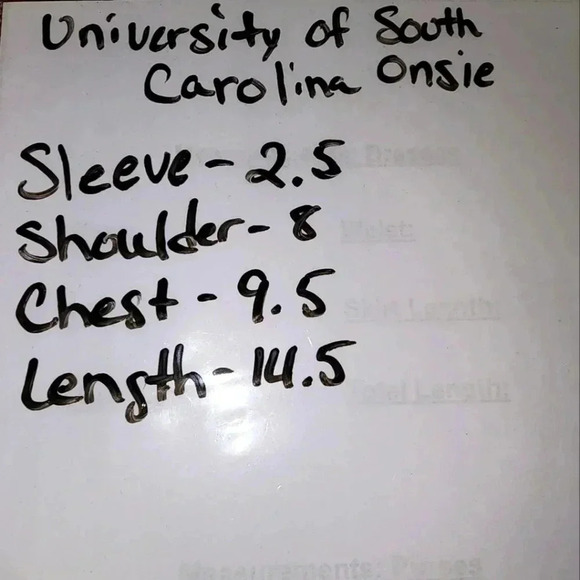 University of South
Carolina Onsie
Sleeve - 2.5
Shoulder - 8
Chest - 9.5
Length - 14.5
Waist:
Skirt Length:
Total Length:
Measurements: